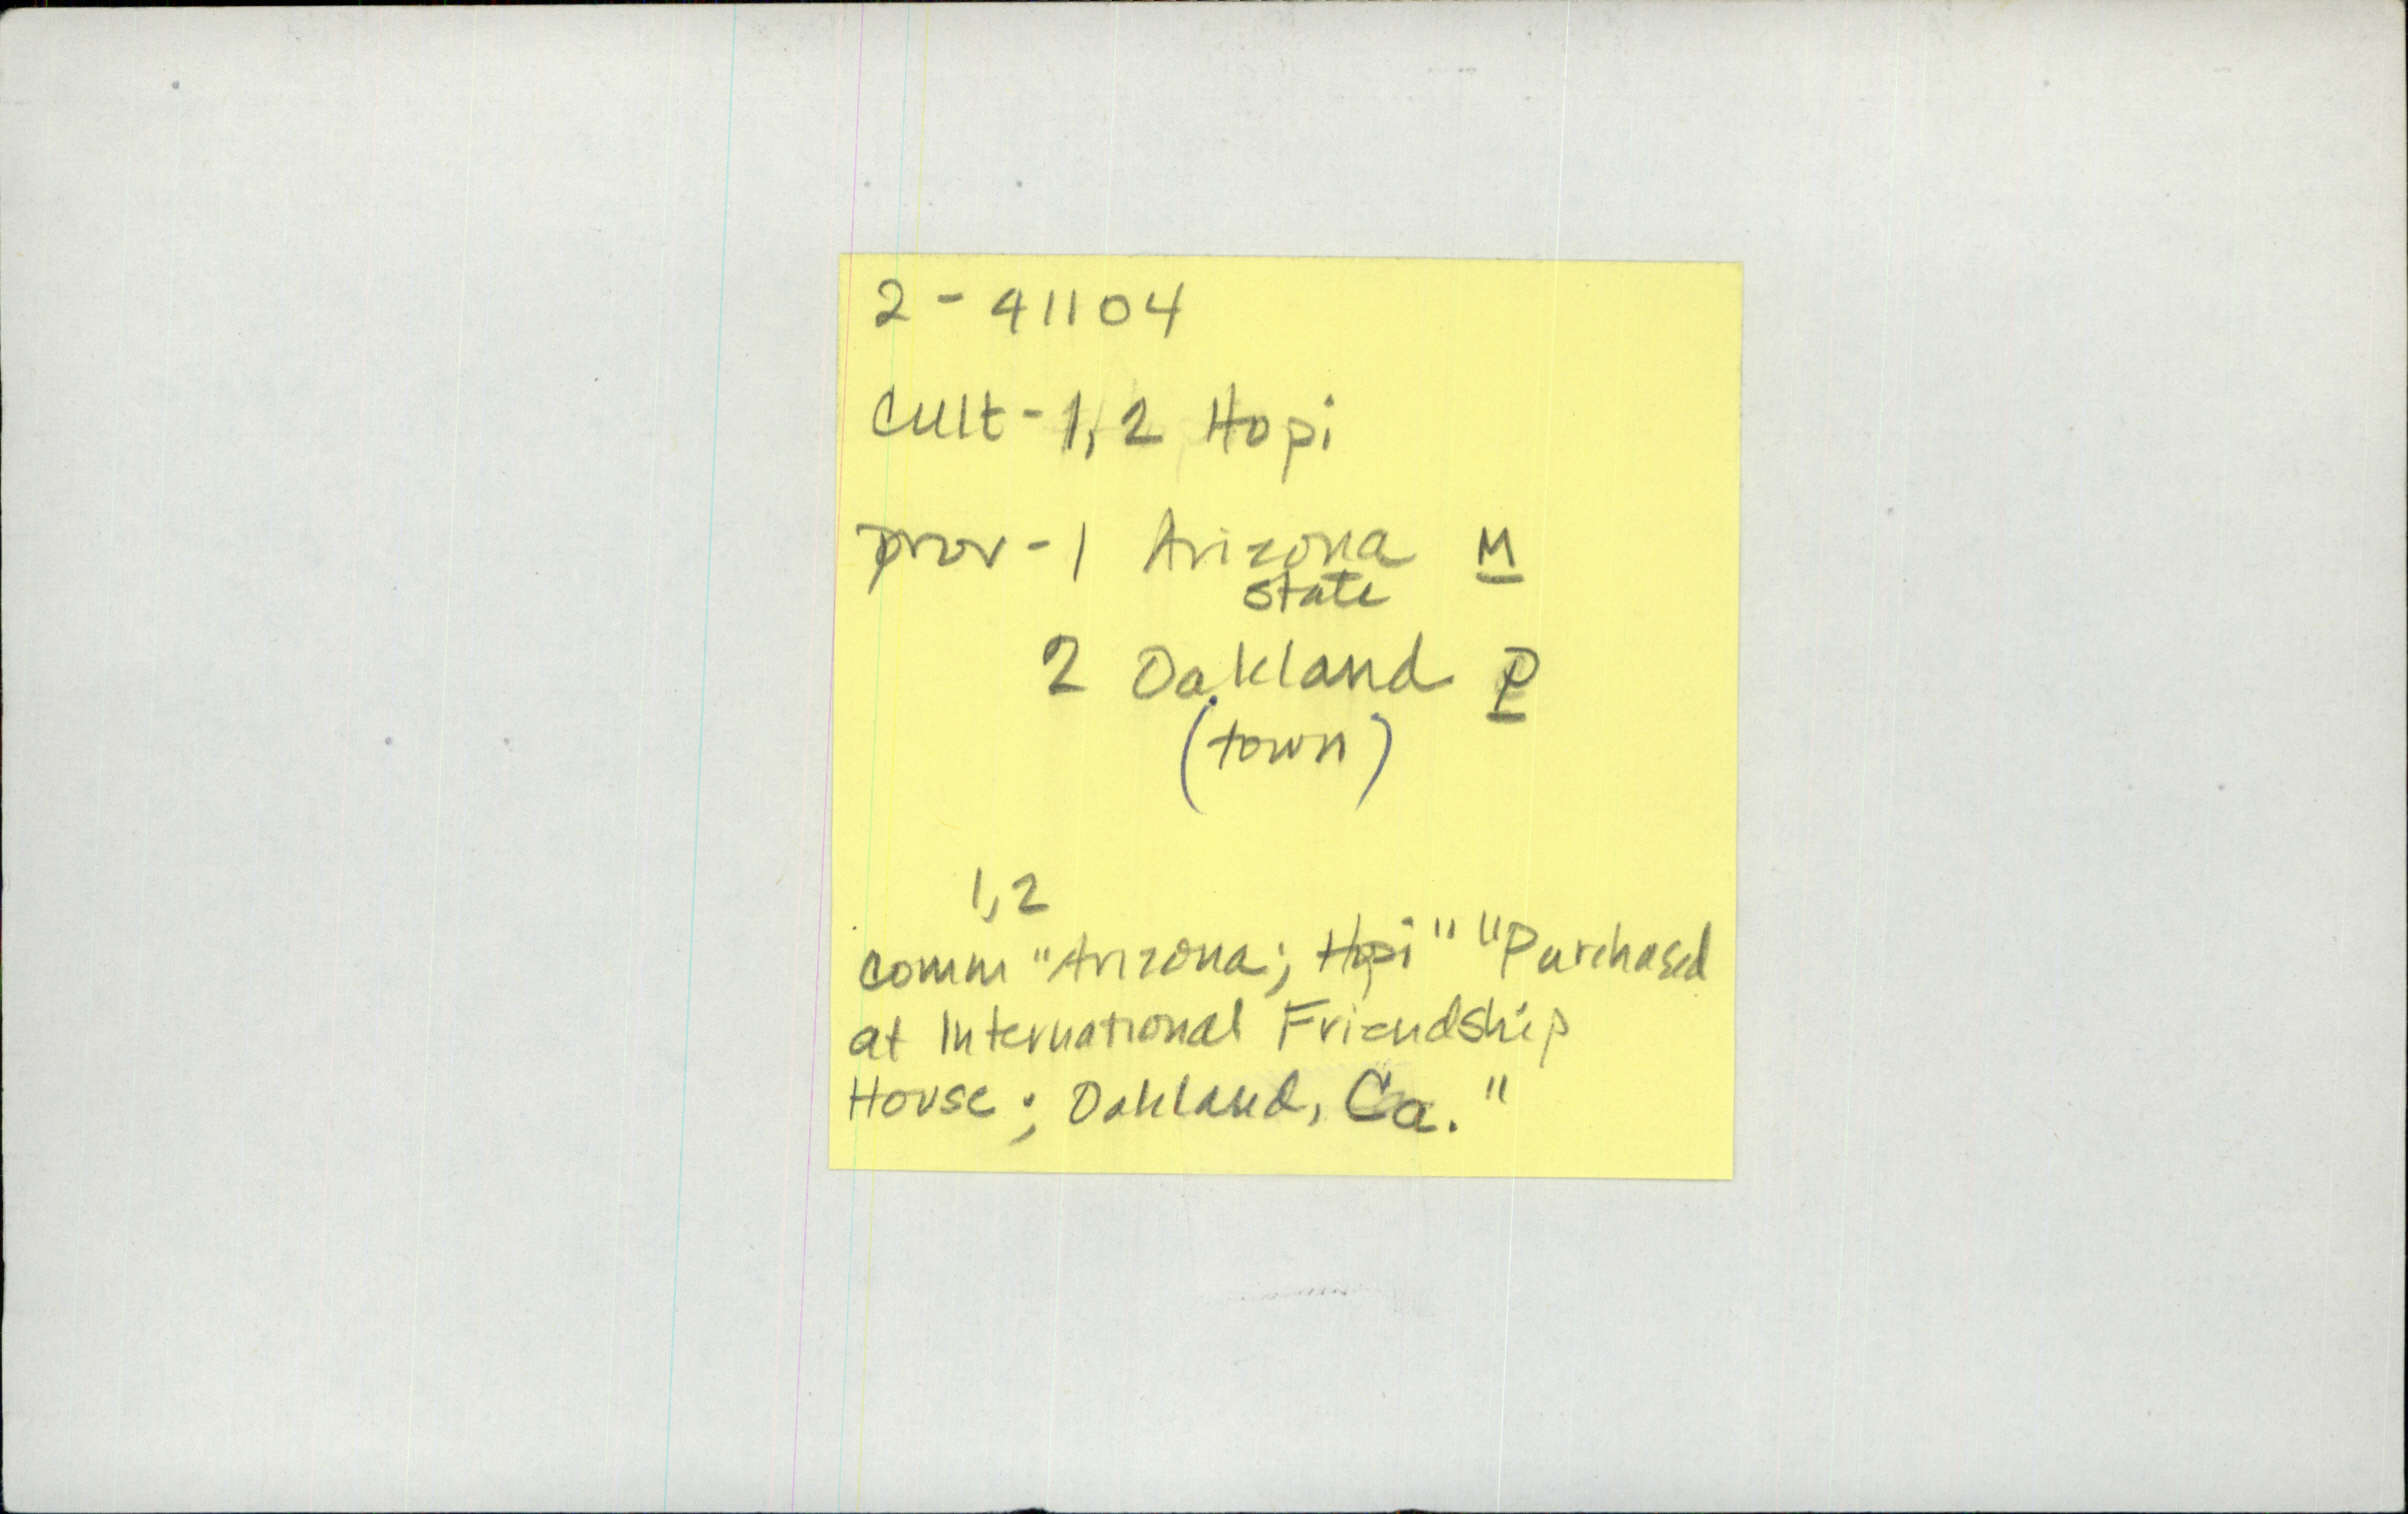 2 - 41104
Cult - 1, 2 Hopi
prov - 1 Arizona M
state
2 Oakland P
(town)
1, 2
comm "Arizona; Hopi" "Purchased
at International Friendship
House; Oakland, Ca."